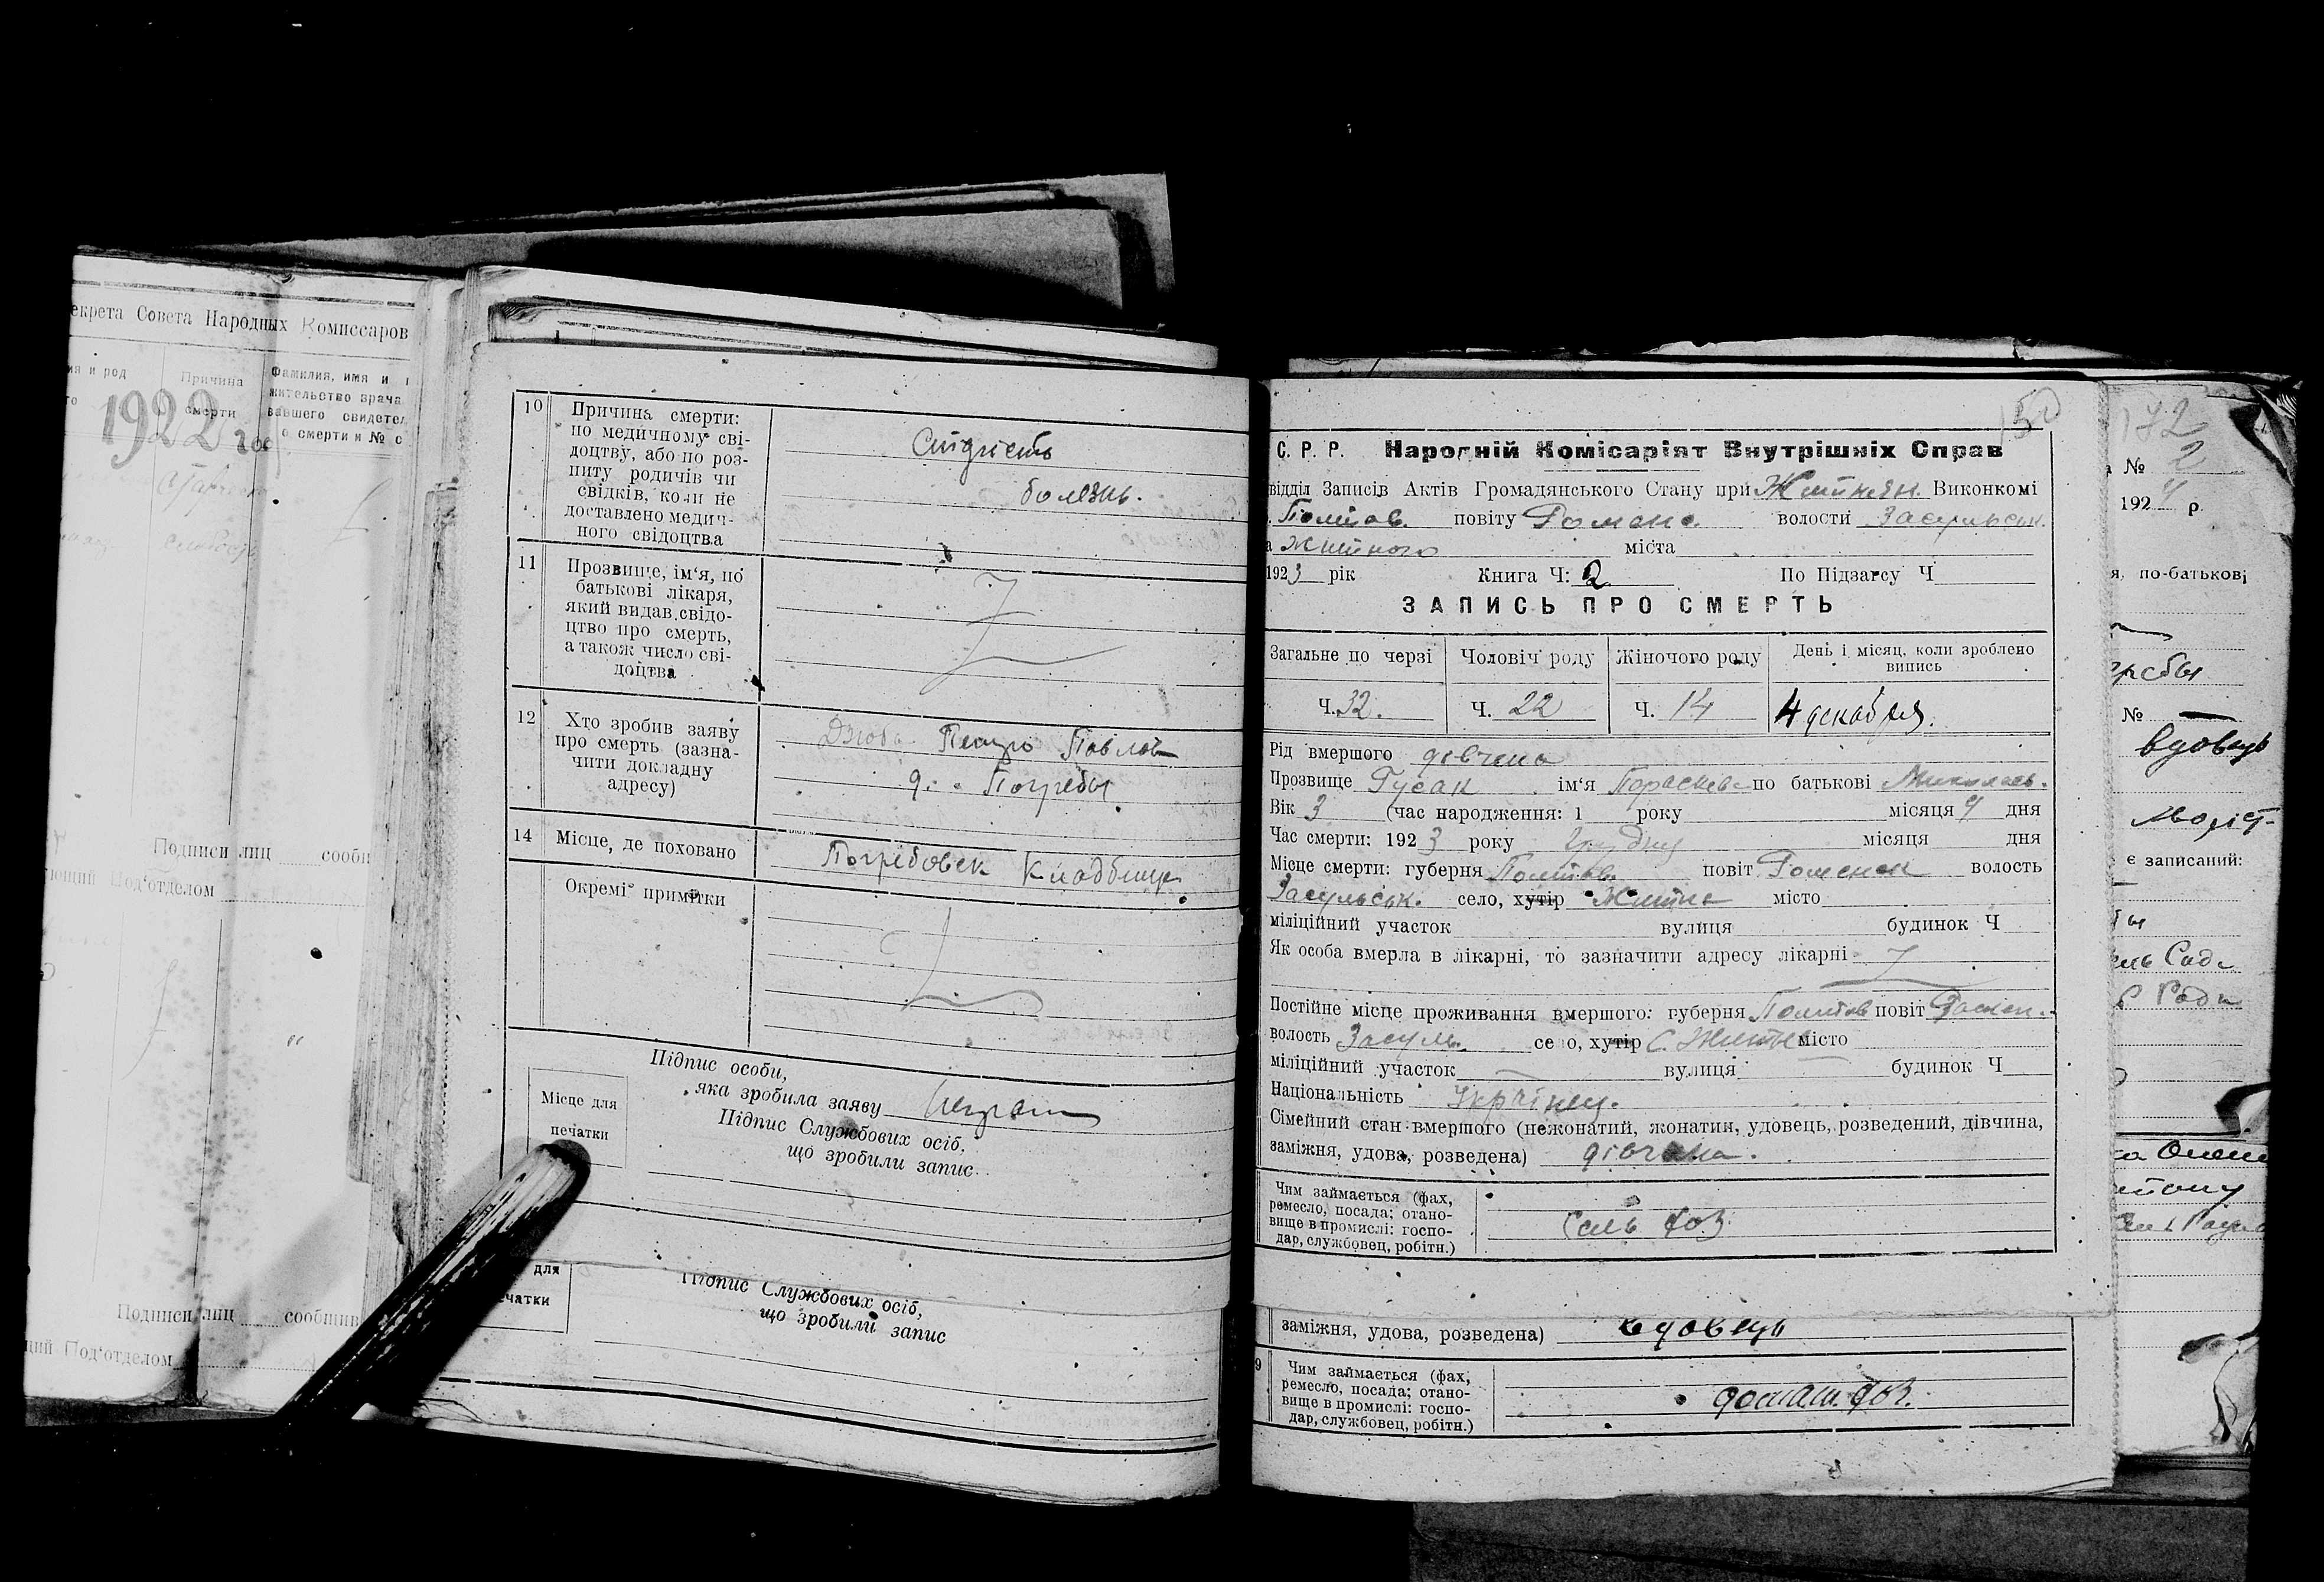 екрета Совета Народных Комиссаров
ия и род
Причина
смерти
Фамилия, имя и
жительство врача
вавшего свидетел
о смерти и № с
1922 год
Подписи лиц сообщ
ющий Под'отделом
Подписи лиц сообщив
щий Под'отделом
10 Причина смерти:
по медичному сві-
доцтву, або по роз-
питу родичів чи
свідків, коли не
доставлено медич-
ного свідоцтва
болезнь.
11 Прозвище, ім'я, по
батькові лікаря,
який видав свідо-
цтво про смерть,
а також число сві-
доцтва
12 Хто зробив заяву
про смерть (зазна-
чити докладну
адресу)
Петро Павлов
Погребы
14 Місце, де поховано
Погребовск Кладбище
Окремі примітки
Підпис особи,
яка зробила заяву
Підпис Службових осіб,
що зробили запис
Місце для
печатки
для
ечатки
Підпис Службових осіб,
що зробили запис
150
С. Р. Р. Народній Комісаріят Внутрішніх Справ
відділ Записів Актів Громадянського Стану при Житнян. Виконкомі
Полтав. повіту Роменс. волости Засульськ.
а Житного міста
1923 рік Книга Ч: 2 По Підзагсу Ч
ЗАПИСЬ ПРО СМЕРТЬ
Загальне по черзі Чоловіч роду Жіночого роду День і місяц, коли зроблено
випись
Ч. 32. Ч. 22 Ч. 14 4 декабря.
Рід вмершого дівчина
Прозвище Гусак ім'я Параскева по батькові Миколаев.
Вік 3 (час народження: 1 року місяця дня
Час смерти: 1923 року Грудня місяця дня
Місце смерти: губерня Полтав. повіт Роменск волость
Засульськ. село, хутір Житне місто
міліційний участок вулиця будинок Ч
Як особа вмерла в лікарні, то зазначити адресу лікарні
Постійне місце проживання вмершого: губерня Полтав повіт Ромен.
волость Засуль. село, хутір С. Житне місто
міліційний участок вулиця будинок Ч
Національність Українец.
Сімейний стан вмершого (нежонатий, жонатий, удовець, розведений, дівчина,
заміжня, удова, розведена) дівчина.
Чим займається (фах,
ремесло, посада; отано-
вище в промислі: госпо-
дар, службовец, робітн.)
Сель хоз.
заміжня, удова, розведена) вдовець
9 Чим займається (фах,
ремесло, посада; отано-
вище в промислі: госпо-
дар, службовец, робітн.)
домаш. хоз.
172
№ 2
1924 р.
я, по-батькові
№
вдовець
є записаний: